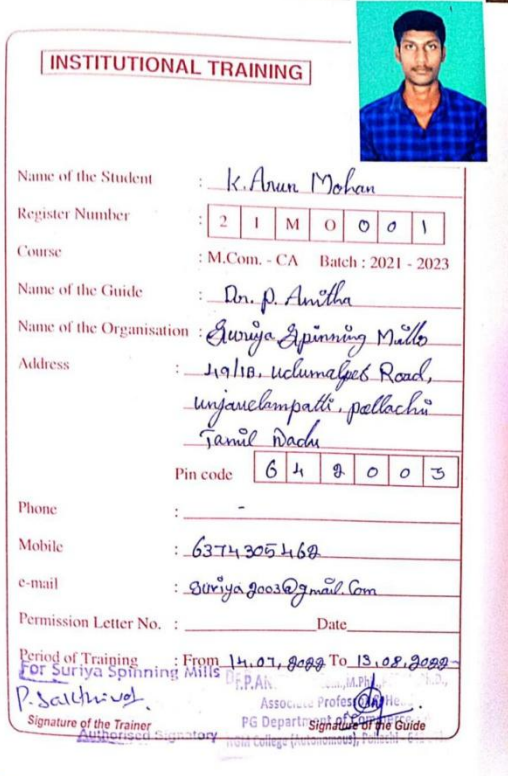 INSTITUTIONAL TRAINING
Name of the Student : K. Arun Mohan
Register Number : 2 1 M O 0 0 1
Course : M.Com. - CA Batch : 2021 - 2023
Name of the Guide : Dr. P. Anitha
Name of the Organisation : Suriya Spinning Mills
Address : 49/1B, udumalpet Road,
unjavelampatti, pollachi
Tamil Nadu
Pin code 6 4 2 0 0 3
Phone : -
Mobile : 6374305462
e-mail : suriya2003@gmail.com
Permission Letter No. : Date
Period of Training : From 14.07.2022 To 13.08.2022
For Suriya Spinning Mills
P. Sakthivel
Associate Professor
Signature of the Trainer PG Department of Commerce Signature of the Guide
Authorised Signatory College (Autonomous), Pollachi